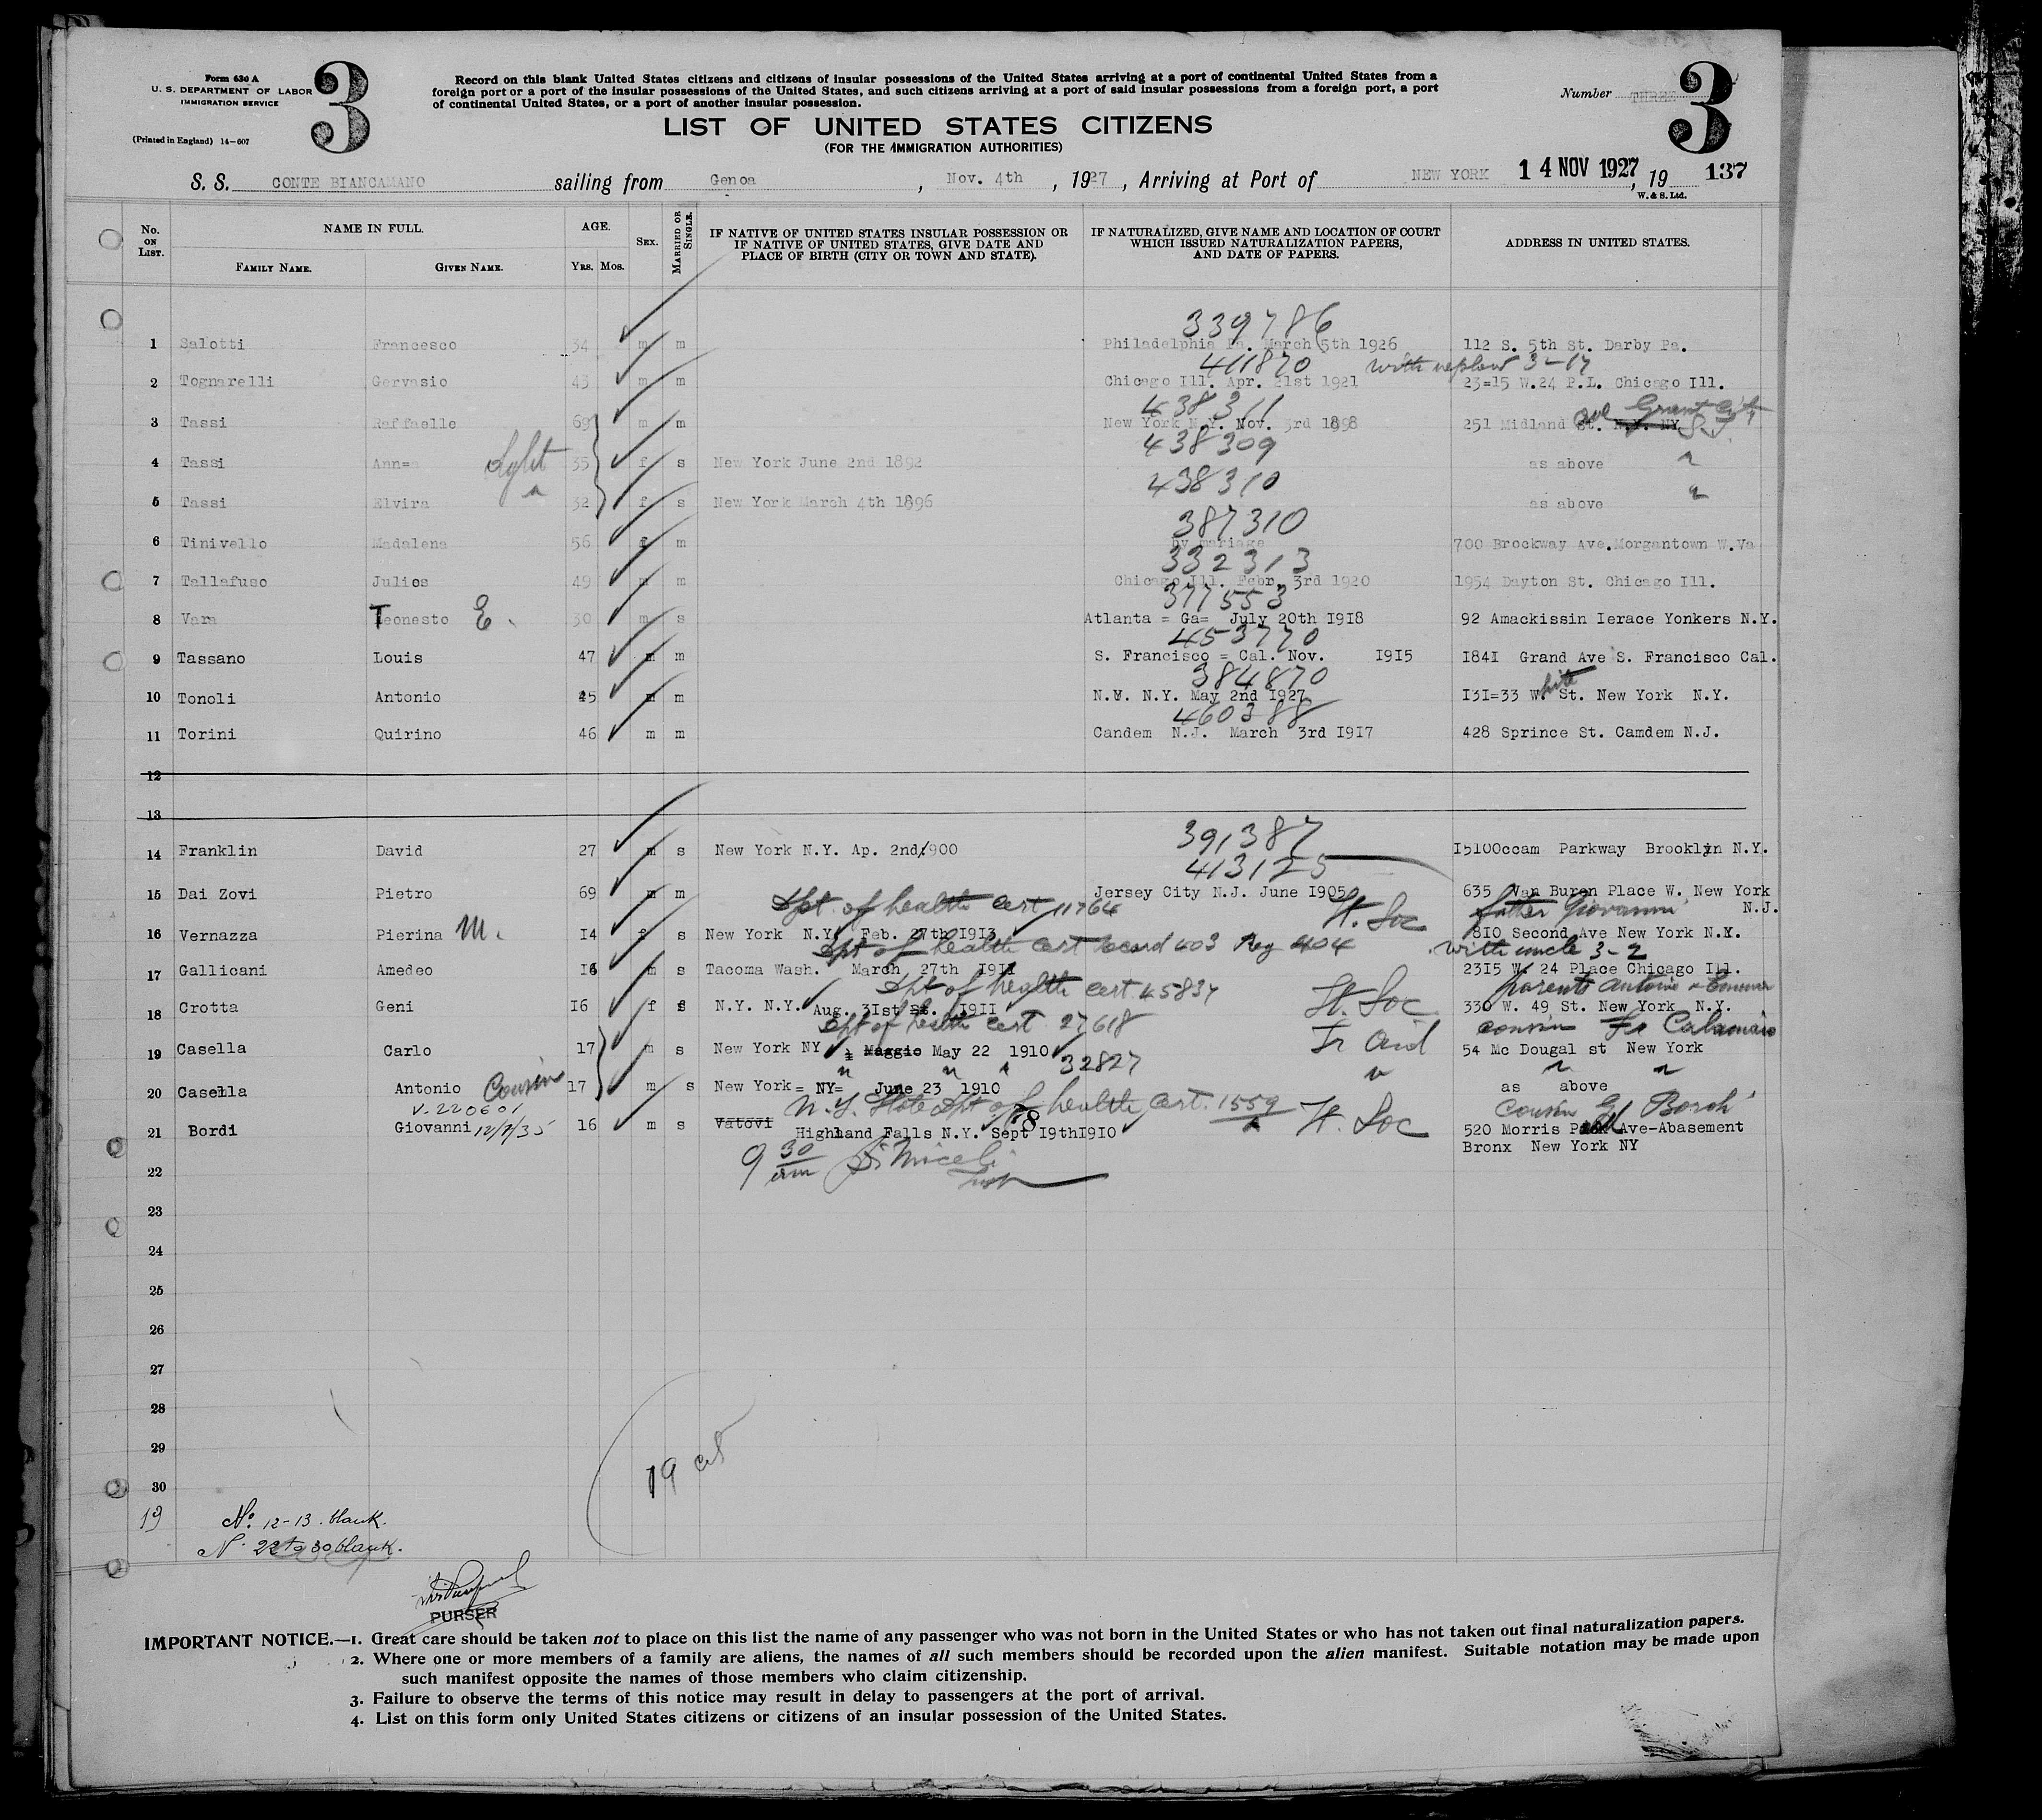 Form 630 A
U. S. DEPARTMENT OF LABOR
IMMIGRATION SERVICE
(Printed in England) 14-607
3
Record on this blank United States citizens and citizens of insular possessions of the United States arriving at a port of continental United States from a
foreign port or a port of the insular possessions of the United States, and such citizens arriving at a port of said insular possessions from a foreign port, a port
of continental United States, or a port of another insular possession.
LIST OF UNITED STATES CITIZENS
(FOR THE IMMIGRATION AUTHORITIES)
Number THREE
3
S. S. CONTE BIANCAMANO sailing from Genoa, Nov. 4th, 1927, Arriving at Port of NEW YORK 14 NOV 1927, 19 137
W. & S. Ltd.
No. ON LIST. NAME IN FULL. FAMILY NAME. GIVEN NAME. AGE. YRS. MOS. SEX. MARRIED OR SINGLE. IF NATIVE OF UNITED STATES INSULAR POSSESSION OR IF NATIVE OF UNITED STATES, GIVE DATE AND PLACE OF BIRTH (CITY OR TOWN AND STATE). IF NATURALIZED, GIVE NAME AND LOCATION OF COURT WHICH ISSUED NATURALIZATION PAPERS, AND DATE OF PAPERS. ADDRESS IN UNITED STATES.
339786
1 Salotti Francesco 34 m m Philadelphia Pa. March 5th 1926 112 S. 5th St. Darby Pa.
411870 with nephew 3-17
2 Tognarelli Gervasio 43 m m Chicago Ill. Apr. 21st 1921 23=15 W.24 P.L. Chicago Ill.
438311 Ave Grant City
3 Tassi Raffaelle 69 m m New York N.Y. Nov. 3rd 1898 251 Midland St. N.Y. NY S.I.
438309
4 Tassi Ann=a 35 f s New York June 2nd 1892 as above "
438310
5 Tassi Elvira " 32 f s New York March 4th 1896 as above "
387310
6 Tinivello Madalena 56 f m by mariage 700 Brockway Ave.Morgantown W.Va
332313
7 Tallafuso Julios 49 m m Chicago Ill. Febr. 3rd 1920 1954 Dayton St. Chicago Ill.
377553
8 Vara Teonesto E. 30 m s Atlanta = Ga= July 20th I9I8 92 Amackissin Ierace Yonkers N.Y.
453770
9 Tassano Louis 47 m m S. Francisco = Cal. Nov. I9I5 I84I Grand Ave S. Francisco Cal.
384870
10 Tonoli Antonio 45 m m N.Y. N.Y. May 2nd I927 I3I=33 White St. New York N.Y.
460388
11 Torini Quirino 46 m m Candem N.J. March 3rd I9I7 428 Sprince St. Camdem N.J.
12
13
391387
14 Franklin David 27 m s New York N.Y. Ap. 2nd/900 I5100ccam Parkway Brooklyn N.Y.
413125
15 Dai Zovi Pietro 69 m m Jersey City N.J. June I905 635 Van Buren Place W. New York N.J.
Dpt. of health Cert 11764 St. Soc father Giovanni
16 Vernazza Pierina M. I4 f s New York N.Y. Feb. 27th I9I3 810 Second Ave New York N.Y.
Dpt of health Cert record 403 Reg 404 with uncle 3-2
17 Gallicani Amedeo I6 m s Tacoma Wash. March 27th I9II 23I5 W. 24 Place Chicago Ill.
Dpt of health Cert. 45837 St. Soc parents Antonio
18 Crotta Geni I6 f s N.Y. N.Y. Aug. 3Ist I9II 330 W. 49 St. New York N.Y.
Dpt of health Cert. 27618 cousin
19 Casella Carlo 17 m s New York NY Maggio May 22 1910 54 Mc Dougal st New York
" " " 32827
20 Casella Antonio Cousin 17 m s New York = NY= June 23 1910 as above
V-220601 N.Y. State Dpt of health Cert. 1559 St. Soc Cousin
21 Bordi Giovanni 12/7/35 16 m s Vatovi Highland Falls N.Y. Sept I9thI9I0 520 Morris Park Ave-Abasement
Bronx New York NY
22
9 30 am
23
24
25
26
27
28
29
30
19
19
No. 12-13. blank.
N. 22 to 30 blank.
PURSER
IMPORTANT NOTICE.—1. Great care should be taken not to place on this list the name of any passenger who was not born in the United States or who has not taken out final naturalization papers.
2. Where one or more members of a family are aliens, the names of all such members should be recorded upon the alien manifest. Suitable notation may be made upon
such manifest opposite the names of those members who claim citizenship.
3. Failure to observe the terms of this notice may result in delay to passengers at the port of arrival.
4. List on this form only United States citizens or citizens of an insular possession of the United States.